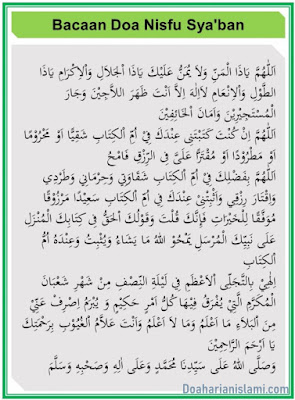 Bacaan Doa Nisfu Sya'ban
اَللّٰهُمَّ يَاذَا الْمَنِّ وَلَا يُمَنُّ عَلَيْكَ يَاذَا الْجَلَالِ وَالْاِكْرَامِ يَاذَا
الطَّوْلِ وَالْاِنْعَامِ لَااِلٰهَ اِلَّا اَنْتَ ظَهَرَ اللَّاجِيْنَ وَجَارَ
الْمُسْتَجِيْرِيْنَ وَاَمَانَ الْخَائِفِيْنَ
اَللّٰهُمَّ اِنْ كُنْتَ كَتَبْتَنِى عِنْدَكَ فِيْ اُمِّ الْكِتَابِ شَقِيًّا اَوْ مَحْرُوْمًا
اَوْ مَطْرُوْدًا اَوْ مُقْتَرًّا عَلَىَّ فِى الرِّزْقِ فَامْحُ
اَللّٰهُمَّ بِفَضْلِكَ فِيْ اُمِّ الْكِتَابِ شَقَاوَتِي وَحِرْمَانِي وَطَرْدِي
وَاِقْتَارَ رِزْقِي وَاَثْبِتْنِىْ عِنْدَكَ فِي اُمِّ الْكِتَابِ سَعِيْدًا مَرْزُوْقًا
مُوَفَّقًا لِلْخَيْرَاتِ فَاِنَّكَ قُلْتَ وَقَوْلُكَ الْحَقُّ فِى كِتَابِكَ الْمُنْزَلِ
عَلَى نَبِيِّكَ الْمُرْسَلِ يَمْحُو اللهُ مَا يَشَاءُ وَيُثْبِتُ وَعِنْدَهُ اُمُّ
الْكِتَابِ
اِلٰهِيْ بِالتَّجَلِّى الْاَعْظَمِ فِي لَيْلَةِ النِّصْفِ مِنْ شَهْرِ شَعْبَانَ
الْمُكَرَّمِ الَّتِيْ يُفْرَقُ فِيْهَا كُلُّ اَمْرٍ حَكِيْمٍ وَ يُبْرَمُ اِصْرِفْ عَنِّيْ
مِنَ الْبَلَاءِ مَا اَعْلَمُ وَمَا لَا اَعْلَمُ وَاَنْتَ عَلَّامُ الْغُيُوْبِ بِرَحْمَتِكَ
يَا اَرْحَمَ الرَّاحِمِيْنَ
وَصَلَّى اللهُ عَلَى سَيِّدِنَا مُحَمَّدٍ وَعَلَى اٰلِهِ وَصَحْبِهِ وَسَلَّمَ
Doaharianislami.com